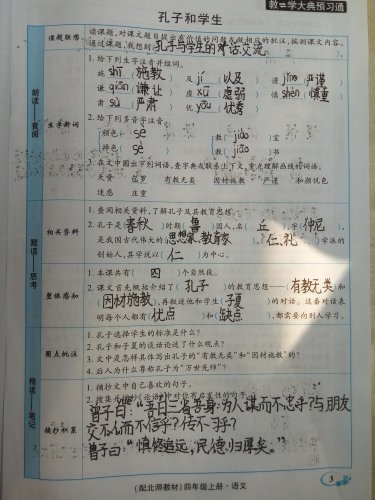 教与学大典预习通
孔子和学生
课题联想
读课题,对课文题目提出有价值的问题或做相应的批注,猜测课文内容。
通过课题,我想到(孔子与学生的对话交流。)
朗读——查阅
生字新词
1. 给下列生字注音并组词。
施 shī (施教) 及 jí (以及) 谨 jǐn (严谨)
谦 qiān (谦让) 虚 xū (虚弱) 慎 shèn (慎重)
肃 sù (严肃) 优 yōu (优秀)
2. 给下列多音字注音。
颜色 (sè) 教 (jiào) 室
掉色 教 (jiāo) 书
3. 在文中画出下列词语,查字典或联系上下文,重点理解画线的词语。
天资 有教无类 因材施教 严谨 和颜悦色
迷惑 庄重
默读——思考
相关资料
1. 查阅相关资料,了解孔子及其教育思想。
2. 孔子是(春秋)时期(鲁)国人,名(丘),字(仲尼),
是我国古代伟大的(思想家、教育家),(仁、礼)学派的
创始人,其学说以(仁)为中心。
整体感知
1. 本课共有(四)个自然段。
2. 课文首先概括介绍了(孔子)的教育思想——(有教无类)和
(因材施教),再叙述他和学生(子夏)的对话。这番对话表
明每个人都有(优点)和(缺点),都需要向别人学习。
精读——笔记
圈点批注
1. 孔子选择学生的标准是什么?
2. 孔子和子夏的谈话论述了什么观点?
3. 文中是怎样具体写出孔子的“有教无类”和“因材施教”的?
4. 后人为什么尊称孔子为“万世先师”?
摘抄积累
1. 摘抄文中自己喜欢的句子。
2. 搜集《论语》中对你有启发性的句子。
曾子曰:“吾日三省吾身:为人谋而不忠乎?与朋友
交不信而不信乎?传不习乎?
曾子曰:“慎终追远,民德归厚矣。”
3
(配北师教材) 四年级上册·语文